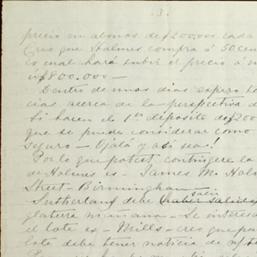 .3.
precio en abonos de £200.000 cada
Creo que Holmes compra á 50 cen
lo cual hará subir el precio á
£800.000 —
Dentro de unos dias espero
cias acerca de la perspectiva d
Si hacen el 1er deposito de £20
que se puede considerar como
seguro — Ojalá y asi sea!
Por lo que potest contingere la
de Holmes es — James M. Hol
Street — Birmingham —
Sutherland debe salir
glaterra mañana — Se interesa
el lote es — Mills — creo que por
lote debe tener noticia de